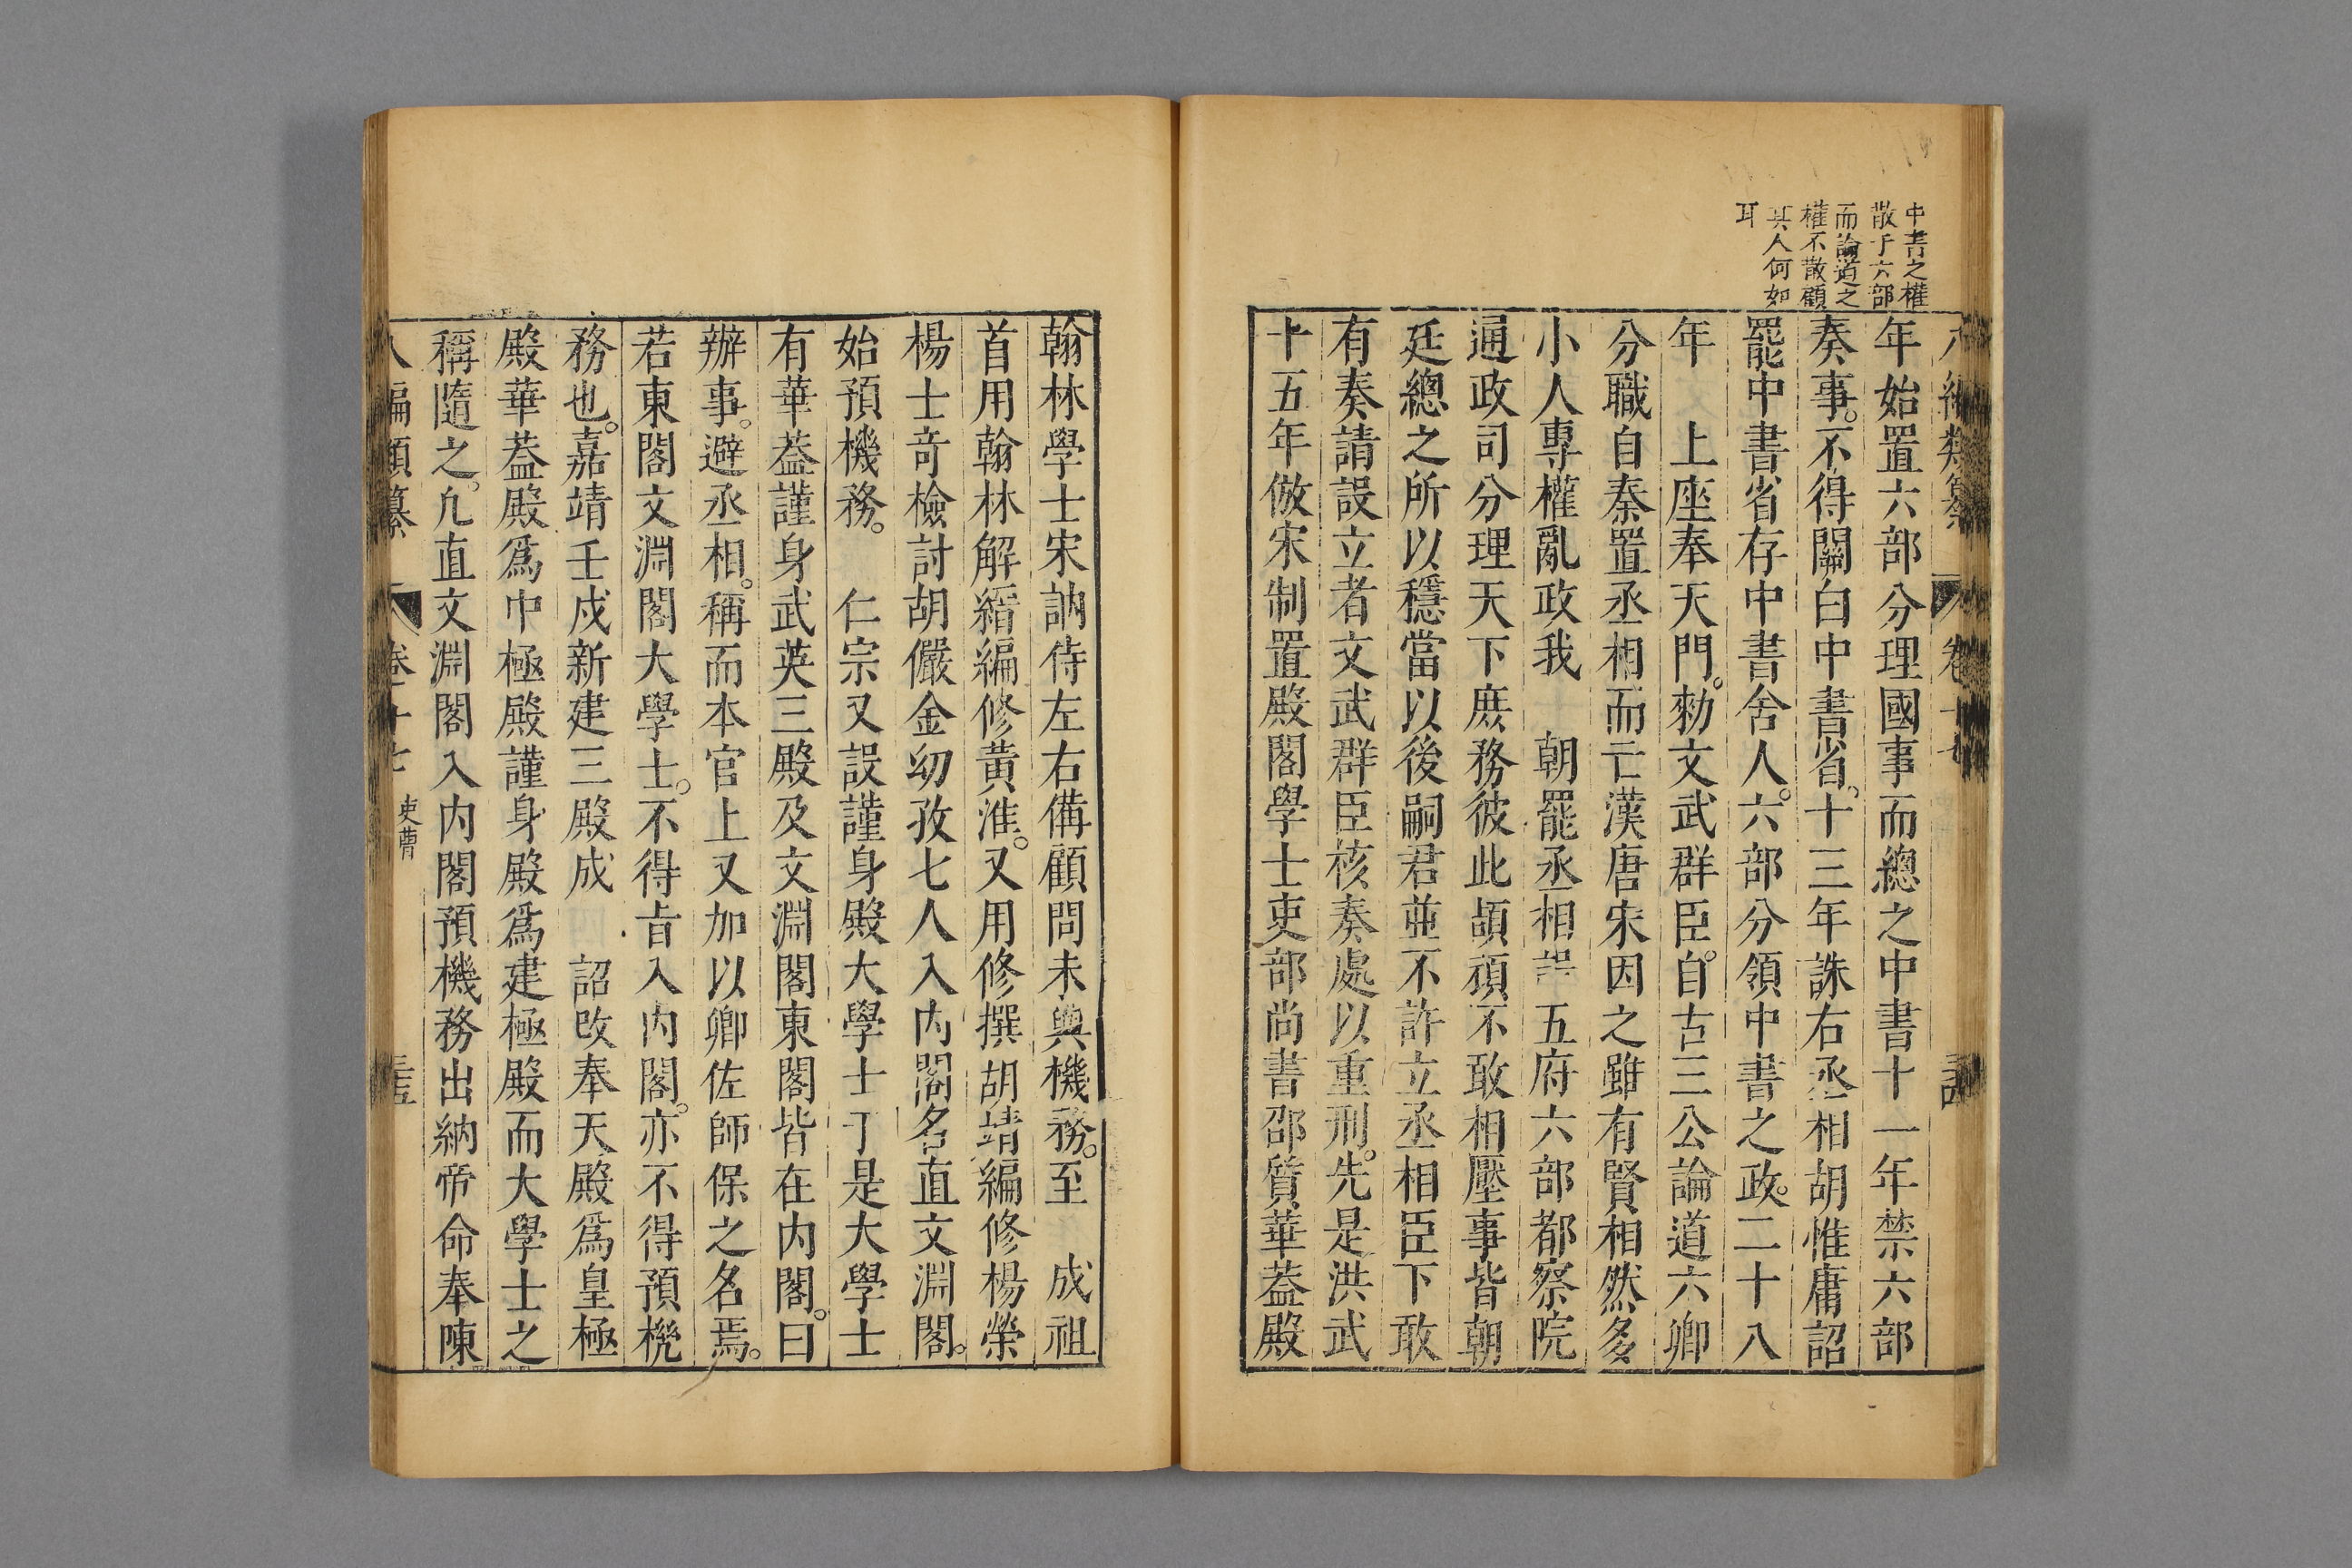 中書之權
散于六部
而論道之
權不散顧
其人何如
耳
年始置六部分理國事而總之中書十一年禁六部
奏事。不得關白中書省。十三年誅右丞相胡惟庸詔
罷中書省存中書舍人。六部分領中書之政。二十八
年 上座奉天門。勑文武群臣。自古三公論道六卿
分職自秦置丞相而亡漢唐宋因之雖有賢相然多
小人專權亂政我 朝罷丞相設五府六部都察院
通政司分理天下庶務彼此頡頏不敢相壓事皆朝
廷總之所以穩當以後嗣君並不許立丞相臣下敢
有奏請設立者文武群臣核奏處以重刑。先是洪武
十五年倣宋制置殿閣學士吏部尚書邵質華葢殿
翰林學士宋訥侍左右備顧問未與機務。至 成祖
首用翰林解縉編修黃淮。又用修撰胡靖編修楊榮
楊士竒檢討胡儼金幼孜七人入內閣名直文淵閣。
始預機務。 仁宗又設謹身殿大學士于是大學士
有華葢謹身武英三殿及文淵閣東閣皆在內閣。曰
辦事。避丞相。稱而本官上又加以卿佐師保之名焉。
若東閣文淵閣大學士。不得旨入內閣。亦不得預機
務也。嘉靖壬戍新建三殿成 詔改奉天殿爲皇極
殿華葢殿爲中極殿謹身殿爲建極殿而大學士之
稱隨之。凢直文淵閣入內閣預機務出納帝命奉陳
八編類纂 卷十七 吏曹 三五